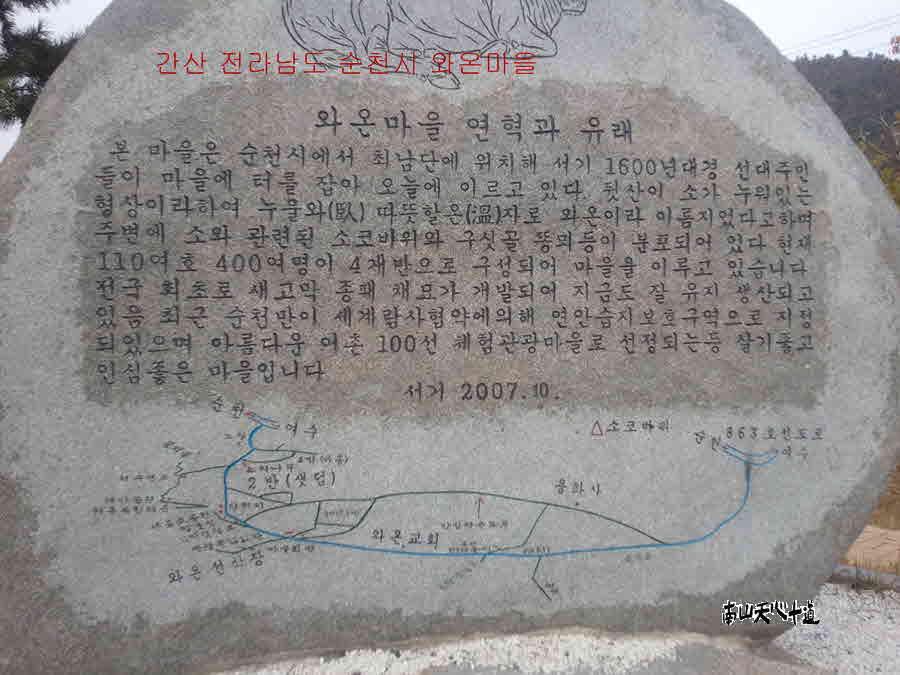 간산 전라남도 순천시 와온마을
와온마을 연혁과 유래
본 마을은 순천시에서 최남단에 위치해 서기 1600년대경 선대주민
들이 마을에 터를 잡아 오늘에 이르고 있다. 뒷산이 소가 누워있는
형상이라하여 누울와(臥) 따뜻할온(溫)자로 와온이라 이름지었다고하며
주변에 소와 관련된 소코바위와 구싯골 똥뫼등이 분포되어 있다 현재
110여호 400여명이 4개반으로 구성되어 마을을 이루고 있습니다
전국 최초로 새고막 종패 채묘가 개발되어 지금도 잘 유지 생산되고
있음 최근 순천만이 세계람사협약에의해 연안습지보호구역으로 지정
되있으며 아름다운 어촌 100선 체험관광마을로 선정되는등 살기좋고
인심좋은 마을입니다
서기 2007.10.
순천 여수
△소코바위 순천 863호선도로
여수
2반(샛덤)
용화사
와온교회
와온선착장
南山天心十道